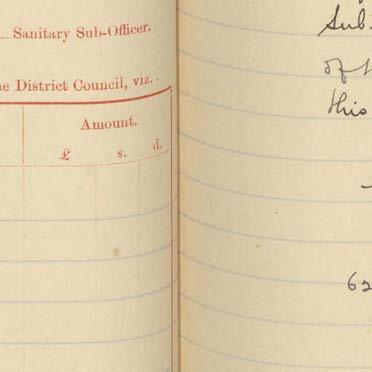 Sanitary Sub-Officer.
e District Council, viz..
Amount.
£ s. d.
Sub.
of
this
62